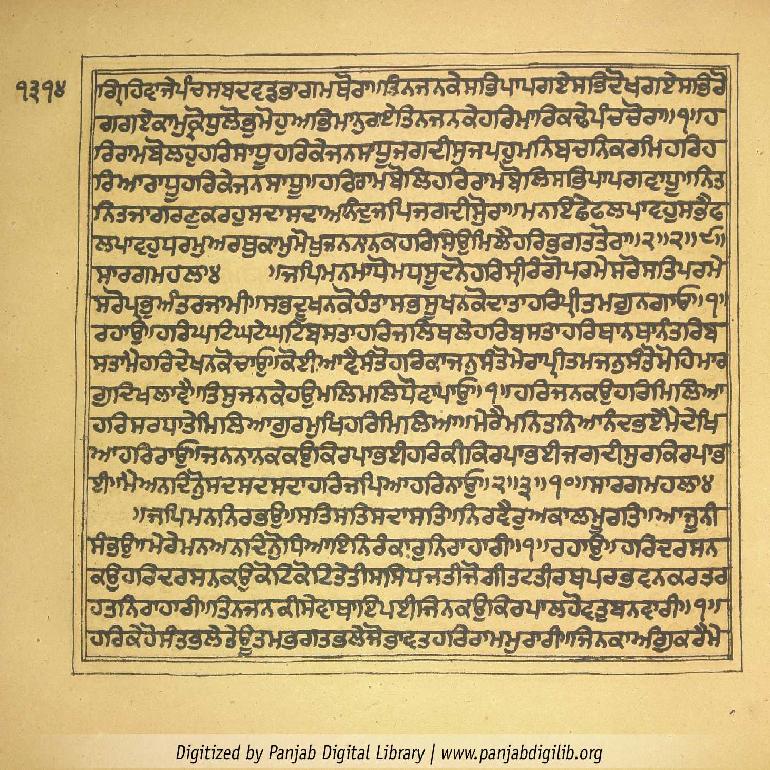 ੧੩੧੪
ਗ੍ਰਿਹਿਵਾਜੇਪੰਚਸਬਦਵਡਭਾਗਮਥੋਰਾ॥ਤਿਨਜਨਕੇਸਭਿਪਾਪਗਏਸਭਿਦੋਖਗਏਸਭਿਰੋ
ਗਗਏਕਾਮੁਕ੍ਰੋਧੁਲੋਭੁਮੋਹੁਅਭਿਮਾਨੁਗਏਤਿਨਜਨਕੇਹਰਿਮਾਰਿਕਢੇਪੰਚਚੋਰਾ॥੧॥ਹ
ਰਿਰਾਮਬੋਲਹੁਹਰਿਸਾਧੂਹਰਿਕੇਜਨਸਾਧੂਜਗਦੀਸੁਜਪਹੁਮਨਿਬਚਨਿਕਰਮਿਹਰਿਹ
ਰਿਆਰਾਧੂਹਰਿਕੇਜਨਸਾਧੂ॥ਹਰਿਰਾਮਬੋਲਿਹਰਿਰਾਮਬੋਲਿਸਭਿਪਾਪਗਵਾਧੂ॥ਨਿਤ
ਨਿਤਜਾਗਰਣੁਕਰਹੁਸਦਾਸਦਾਅਨੰਦੁਜਪਿਜਗਦੀਸੁੋਰਾ॥ਮਨਇਛੇਫਲਪਾਵਹੁਸਭੈਫ
ਲਪਾਵਹੁਧਰਮੁਅਰਥੁਕਾਮੁਮੋਖੁਜਨਨਾਨਕਹਰਿਸਿਉਮਿਲੇਹਰਿਭਗਤਤੋਰਾ॥੨॥੨॥੯॥
ਸਾਰਗਮਹਲਾ੪ ॥ਜਪਿਮਨਮਾਧੋਮਧਸੂਦਨੋਹਰਿਸ੍ਰੀਰੰਗੋਪਰਮੇਸਰੋਸਤਿਪਰਮੇ
ਸਰੋਪ੍ਰਭੁਅੰਤਰਜਾਮੀ॥ਸਭਦੂਖਨਕੋਹੰਤਾਸਭਸੂਖਨਕੋਦਾਤਾਹਰਿਪ੍ਰੀਤਮਗੁਨਗਾਓੁ॥੧॥
ਰਹਾਉ॥ਹਰਿਘਟਿਘਟੇਘਟਿਬਸਤਾਹਰਿਜਲਿਥਲੇਹਰਿਬਸਤਾਹਰਿਥਾਨਥਾਨੰਤਰਿਬ
ਸਤਾਮੈਹਰਿਦੇਖਨਕੋਚਾਓੁ॥ਕੋਈਆਵੈਸੰਤੋਹਰਿਕਾਜਨੁਸੰਤੋਮੇਰਾਪ੍ਰੀਤਮਜਨੁਸੰਤੋਮੋਹਿਮਾਰ
ਗੁਦਿਖਲਾਵੈ॥ਤਿਸੁਜਨਕੇਹਉਮਲਿਮਲਿਧੋਵਾਪਾਓੁ॥੧॥ਹਰਿਜਨਕਉਹਰਿਮਿਲਿਆ
ਹਰਿਸਰਧਾਤੇਮਿਲਿਆਗੁਰਮੁਖਿਹਰਿਮਿਲਿਆ॥ਮੇਰੈਮਨਿਤਨਿਆਨੰਦਭਏਮੈਦੇਖਿ
ਆਹਰਿਰਾਓੁ॥ਜਨਨਾਨਕਕਉਕਿਰਪਾਭਈਹਰਿਕੀਕਿਰਪਾਭਈਜਗਦੀਸੁਰਕਿਰਪਾਭ
ਈ॥ਮੈਅਨਦਿਨੋਸਦਸਦਸਦਾਹਰਿਜਪਿਆਹਰਿਨਾਓੁ॥੨॥੩॥੧੦॥ਸਾਰਗਮਹਲਾ੪
॥ਜਪਿਮਨਨਿਰਭਉ॥ਸਤਿਸਤਿਸਦਾਸਤਿ॥ਨਿਰਵੈਰੁਅਕਾਲਮੂਰਤਿ॥ਆਜੂਨੀ
ਸੰਭਉ॥ਮੇਰੇਮਨਅਨਦਿਨੋੁਧਿਆਇਨਿਰੰਕਾਰੁਨਿਰਾਹਾਰੀ॥੧॥ਰਹਾਉ॥ਹਰਿਦਰਸਨ
ਕਉਹਰਿਦਰਸਨਕਉਕੋਟਿਕੋਟਿਤੇਤੀਸਸਿਧਜਤੀਜੋਗੀਤਟਤੀਰਥਪਰਭਵਨਕਰਤਰ
ਹਤਨਿਰਾਹਾਰੀ॥ਤਿਨਜਨਕੀਸੇਵਾਥਾਇਪਈਜਿਨਕਉਕਿਰਪਾਲਹੋਵਤੁਬਨਵਾਰੀ॥੧॥
ਹਰਿਕੇਹੋਸੰਤਭਲੇਤੇਊਤਮਭਗਤਭਲੇਜੋਭਾਵਤਹਰਿਰਾਮਮੁਰਾਰੀ॥ਜਿਨਕਾਅੰਗੁਕਰੈਮੇ
Digitized by Panjab Digital Library | www.panjabdigilib.org